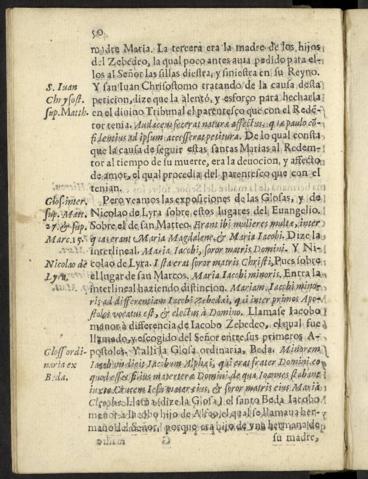 50
madre Maria. La tercera era la madre de los hijos
del Zebedeo, la qual poco antes auia pedido para e-
llos al Señor las sillas diestra, y siniestra en su Reyno.
S. Iuan
Chrysost.
sup. Matth.
Y san Iuan Chrisostomo tratando de la causa desta
peticion, dize que la alentó, y esforço para hecharla
en el diuino Tribunal el parentesco que con el Redẽ-
tor tenia. Audacem fecerat naturæ affectus, quæ paulo cõ-
fidentius ad ipsum accesserat petitura. De lo qual consta
que la causa de seguir estas santas Marias al Redem-
tor al tiempo de su muerte, era la deuocion, y affecto
de amor, el qual procedia del parentesco que con el
tenian.
Glos. inter.
sup. Matt.
27. & sup.
Marc. 15.
Nicolao de
Lyra.
Pero veamos las exposiciones de las Glosas, y de
Nicolao de Lyra sobre estos lugares del Euangelio.
Sobre el de san Matteo. Erant ibi mulieres multæ, inter
quas erant Maria Magdalene, & Maria Iacobi. Dize la
interlineal. Maria Iacobi, soror matris Domini. Y Ni-
colao de Lyra. Ista erat soror matris Christi, Pues sobre
el lugar de san Marcos. Maria Iacobi minoris. Entra la
interlineal haziendo distincion. Mariam Iacobi mino-
ris, ad differentiam Iacobi Zebedæi, qui inter primos Apo-
stolos vocatus est, & electus à Domino. Llamase Iacobo
menor à diferencia de Iacobo Zebedeo, el qual fue
llamado, y escogido del Señor entre sus primeros A-
Gloss. ordi-
naria ex
Beda.
postoles. Y alli la Glosa ordinaria, Beda. Minorem
Iacobum dicit Iacobum Alphæi, qui erat frater Domini, eo
quod esset filius materteræ Domini, de qua Ioannes stabant
iuxta Crucem Iesu mater eius, & soror matris eius Maria
Cleophæ. Llama (dize la Glosa) el santo Beda Iacobo
menor à Iacobo hijo de Alfeo, el qual se llamaua her-
mano del Señor, porque era hijo de vna hermana de
G
su madre,